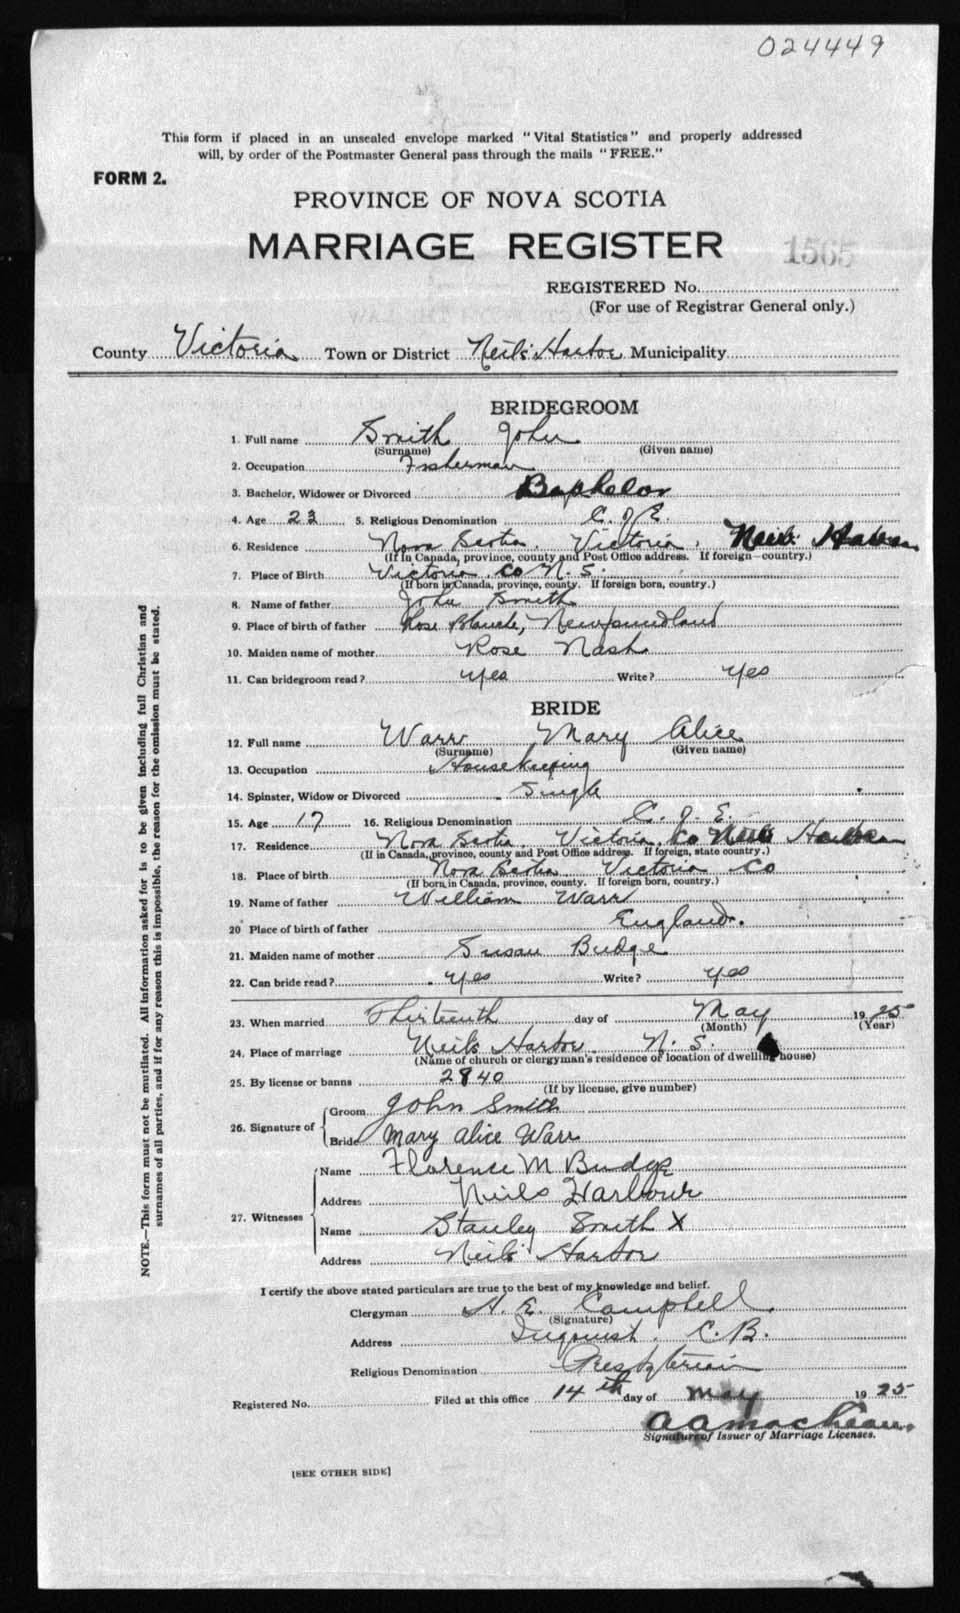 024449
This form if placed in an unsealed envelope marked "Vital Statistics" and properly addressed
will, by order of the Postmaster General pass through the mails "FREE."
FORM 2.
PROVINCE OF NOVA SCOTIA
MARRIAGE REGISTER
1565
REGISTERED No.
(For use of Registrar General only.)
County Victoria Town or District Neil's Harbor Municipality
BRIDEGROOM
1. Full name Smith John
(Surname) (Given name)
2. Occupation Fisherman
3. Bachelor, Widower or Divorced Bachelor
4. Age 23 5. Religious Denomination C. of E.
6. Residence Nova Scotia, Victoria, Neils Harbor
(If in Canada, province, county and Post Office address. If foreign—country.)
7. Place of Birth Victoria Co N. S.
(If born in Canada, province, county. If foreign born, country.)
8. Name of father John Smith
9. Place of birth of father Rose Blanche, Newfoundland
10. Maiden name of mother Rose Nash
11. Can bridegroom read? Yes Write? Yes
BRIDE
12. Full name Warr Mary Alice
(Surname) (Given name)
13. Occupation Housekeeping
14. Spinster, Widow or Divorced Single
15. Age 17 16. Religious Denomination C. of E.
17. Residence Nova Scotia, Victoria Co Neils Harbor
(If in Canada, province, county and Post Office address. If foreign, state country.)
18. Place of birth Nova Scotia Victoria Co
(If born in Canada, province, county. If foreign born, country.)
19. Name of father William Warr
20 Place of birth of father England.
21. Maiden name of mother Susan Budge
22. Can bride read? Yes Write? Yes
23. When married Thirteenth day of May 1925
(Month) (Year)
24. Place of marriage Neils Harbor N. S.
(Name of church or clergyman's residence or location of dwelling house)
25. By license or banns 2840
(If by license, give number)
26. Signature of Groom John Smith
Bride Mary Alice Warr
27. Witnesses Name Florence M Budge
Address Neils Harbour
Name Stanley Smith X
Address Neils Harbor
I certify the above stated particulars are true to the best of my knowledge and belief.
Clergyman A. E. Campbell
(Signature)
Address C. B.
Religious Denomination Presbyterian
Registered No. Filed at this office 14th day of May 1925
A A MacLean
Signature of Issuer of Marriage Licenses.
[SEE OTHER SIDE]
NOTE.—This form must not be mutilated. All information asked for is to be given including full Christian and
surnames of all parties, and if for any reason this is impossible, the reason for the omission must be stated.